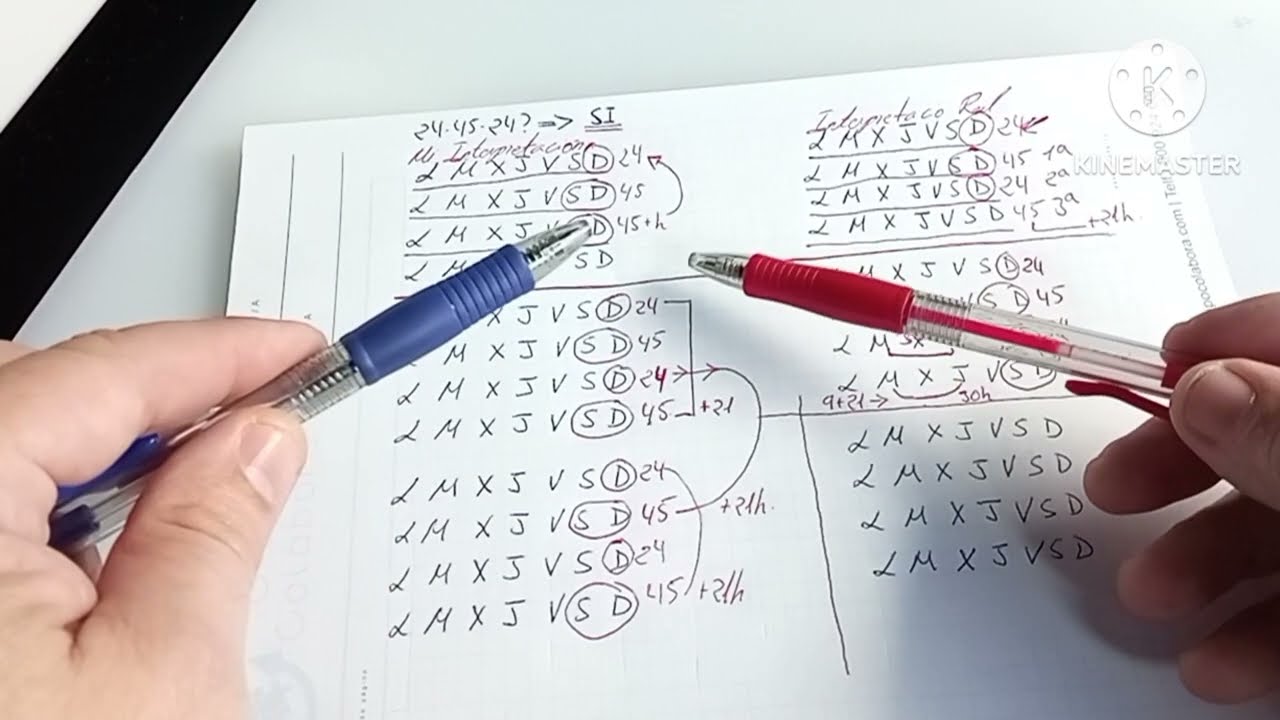 24-45-24? => SI
Mi Interpretación
L M X J V S D 24
L M X J V S D 45
L M X J V D 45+h
L M S D
X J V S D 24
M X J V S D 45
L M X J V S D 24
L M X J V S D 45 +21
L M X J V S D 24
L M X J V S D 45 +21h.
L M X J V S D 24
L M X J V S D 45 +21h
Interpretaco
L M X J V S D 24
L M X J V S D 45 1ª
L M X J V S D 24 2ª
L M X J V S D 45 3ª +21h.
M X J V S D 24
V S D 45
L M
L M X J V S D
9+21 → 30h
L M X J V S D
L M X J V S D
L M X J V S D
L M X J V S D
KINEMASTER